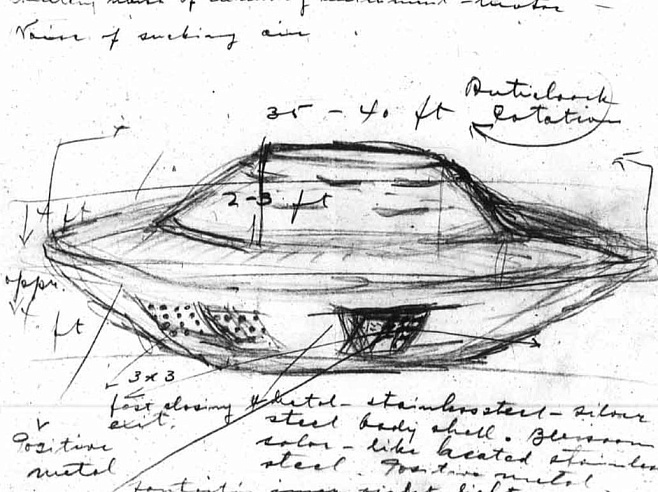 Noise of sucking air
35 - 40 ft
Anticlock
rotation
2-3 ft
4 ft
appr.
4 ft
3x3
fast closing
exit.
Positive
metal
Metal - stainless steel - silver
steel body shell.
color - like heated stainless
steel. Positive metal